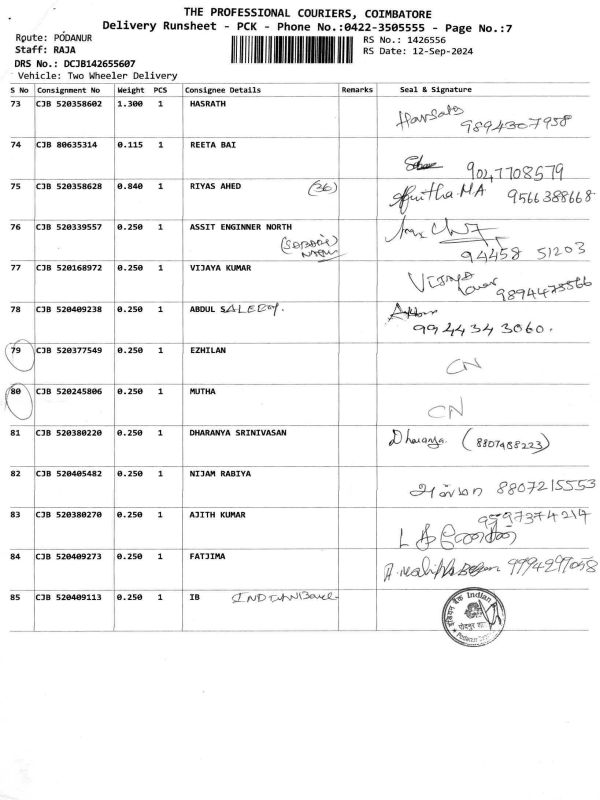 THE PROFESSIONAL COURIERS, COIMBATORE
Delivery Runsheet - PCK - Phone No.:0422-3505555 - Page No.:7
Route: PODANUR
RS No.: 1426556
Staff: RAJA
RS Date: 12-Sep-2024
DRS No.: DCJB142655607
Vehicle: Two Wheeler Delivery
S No Consignment No Weight PCS Consignee Details Remarks Seal & Signature
73 CJB 520358602 1.300 1 HASRATH 9894307958
74 CJB 80635314 0.115 1 REETA BAI 9047708579
75 CJB 520358628 0.840 1 RIYAS AHED (36) 9566388668
76 CJB 520339557 0.250 1 ASSIT ENGINNER NORTH 94458 51203
77 CJB 520168972 0.250 1 VIJAYA KUMAR VIJAYA 9894473566
78 CJB 520409238 0.250 1 ABDUL 9944343060.
79 CJB 520377549 0.250 1 EZHILAN CN
80 CJB 520245806 0.250 1 MUTHA CN
81 CJB 520380220 0.250 1 DHARANYA SRINIVASAN Dharanya (8807488223)
82 CJB 520405482 0.250 1 NIJAM RABIYA 8807215553
83 CJB 520380270 0.250 1 AJITH KUMAR 9597374214
84 CJB 520409273 0.250 1 FATJIMA 9994297058
85 CJB 520409113 0.250 1 IB INDIAN Bank
Indian